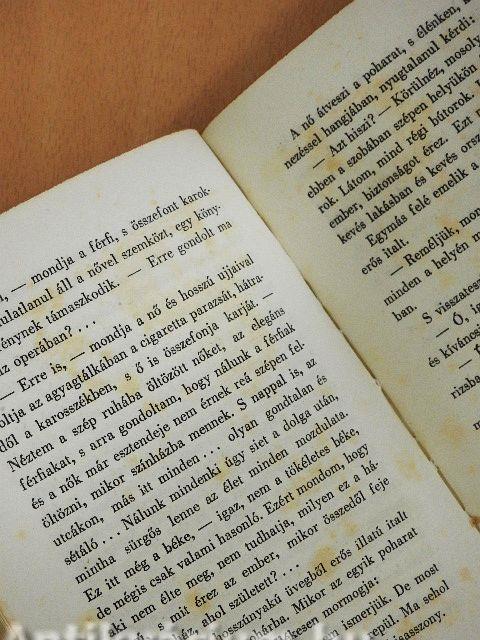 — mondja a férfi, s összefont karok-
áll a nővel szemközt, egy köny-
támaszkodik. — Erre gondolt ma
operában? . . .
— Erre is, — mondja a nő és hosszú ujjaival
az agyagtálkában a cigaretta parazsát, hátra-
dől a karosszékben, s ő is összefonja karját. —
Néztem a szép ruhába öltözött nőket, az elegáns
férfiakat, s arra gondoltam, hogy nálunk a férfiak
és a nők már esztendeje nem érnek reá szépen fel-
öltözni, mikor színházba mennek. S nappal is, az
utcákon, más itt minden . . . olyan gondtalan és
sétáló . . . Nálunk mindenki úgy siet a dolga után,
mintha sürgős lenne az élet minden mozdulata.
Ez itt még a béke, — igaz, nem a tökéletes béke,
de mégis csak valami hasonló. Ezért mondom, hogy
aki nem élte meg, nem tudhatja, milyen ez a há-
s mit érez az ember, mikor összedől feje
ahol született? . . .
üvegből erős illatú italt
Mikor az egyik poharat
mormogja:
ismerjük. De most
Ma sehol
A nő átveszi a poharat, s élénken,
nézéssel hangjában, nyugtalanul kérdi:
— Azt hiszi? — Körülnéz, mosoly
ebben a szobában szépen helyükön
rok. Látom, mind régi bútorok.
ember, biztonságot érez. Ezt
kevés lakásban és kevés
Egymás felé emelik a
erős italt.
— Reméljük,
minden a helyén
ban.
S
— Ó,
és